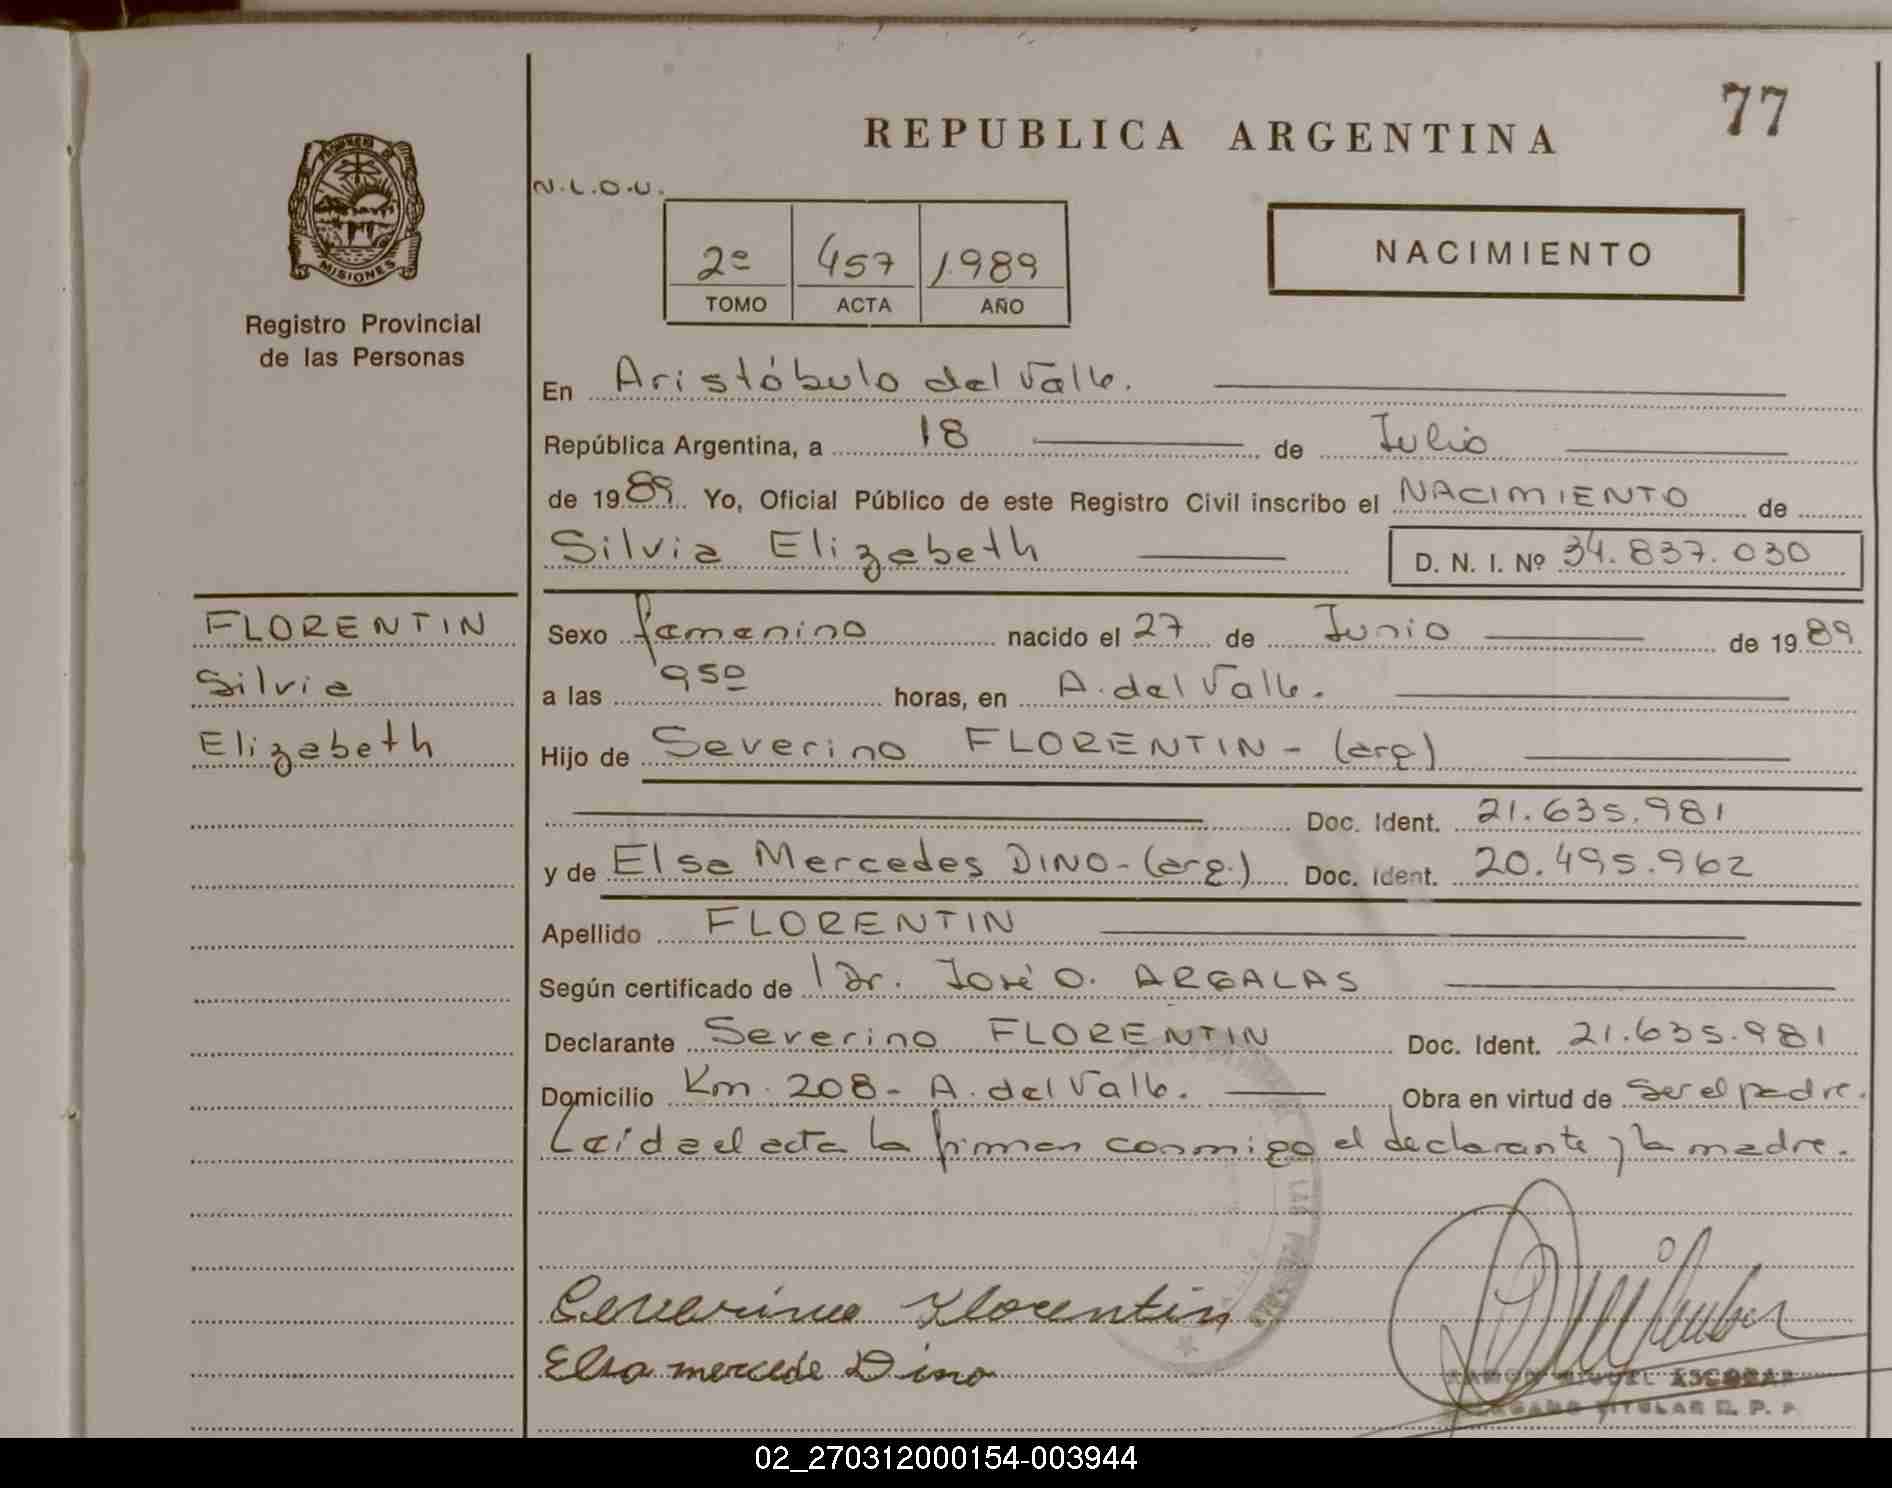 77
REPUBLICA ARGENTINA
N.L.O.U.
MISIONES
Registro Provincial
de las Personas
2º 457 1.989
TOMO ACTA AÑO
NACIMIENTO
En Aristóbulo del Valle.
República Argentina, a 18 de Julio
de 1989. Yo, Oficial Público de este Registro Civil inscribo el NACIMIENTO de
Silvia Elizabeth D. N. I. Nº 34.837.030
FLORENTIN
Silvia
Elizabeth
Sexo femenino nacido el 27 de Junio de 1989
a las 950 horas, en A. del Valle.
Hijo de Severino FLORENTIN - (arg)
Doc. Ident. 21.635.981
y de Elsa Mercedes DINO - (arg.) Doc. Ident. 20.495.962
Apellido FLORENTIN
Según certificado de Dr. José O. ARGALAS
Declarante Severino FLORENTIN Doc. Ident. 21.635.981
Domicilio Km. 208 - A. del Valle. Obra en virtud de ser el padre.
Leída el acta la firman conmigo el declarante y la madre.
Severino Florentin
Elsa mercede Dino
RAMON MIGUEL ESCOBAR
TITULAR R. P. P.
02_270312000154-003944